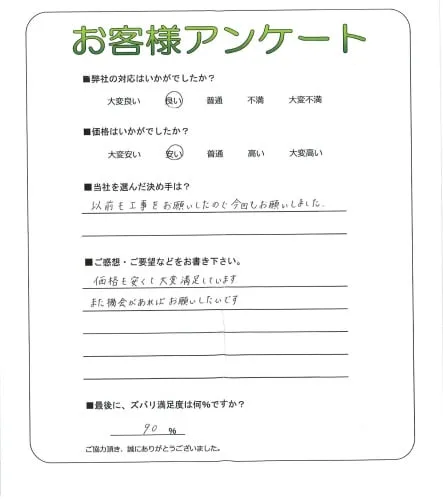 お客様アンケート
■弊社の対応はいかがでしたか?
大変良い 良い 普通 不満 大変不満
■価格はいかがでしたか?
大変安い 安い 普通 高い 大変高い
■当社を選んだ決め手は?
以前も工事をお願いしたので今回もお願いしました。
■ご感想・ご要望などをお書き下さい。
価格も安くて大変満足しています
また機会があればお願いしたいです
■最後に、ズバリ満足度は何%ですか?
90 %
ご協力頂き、誠にありがとうございました。